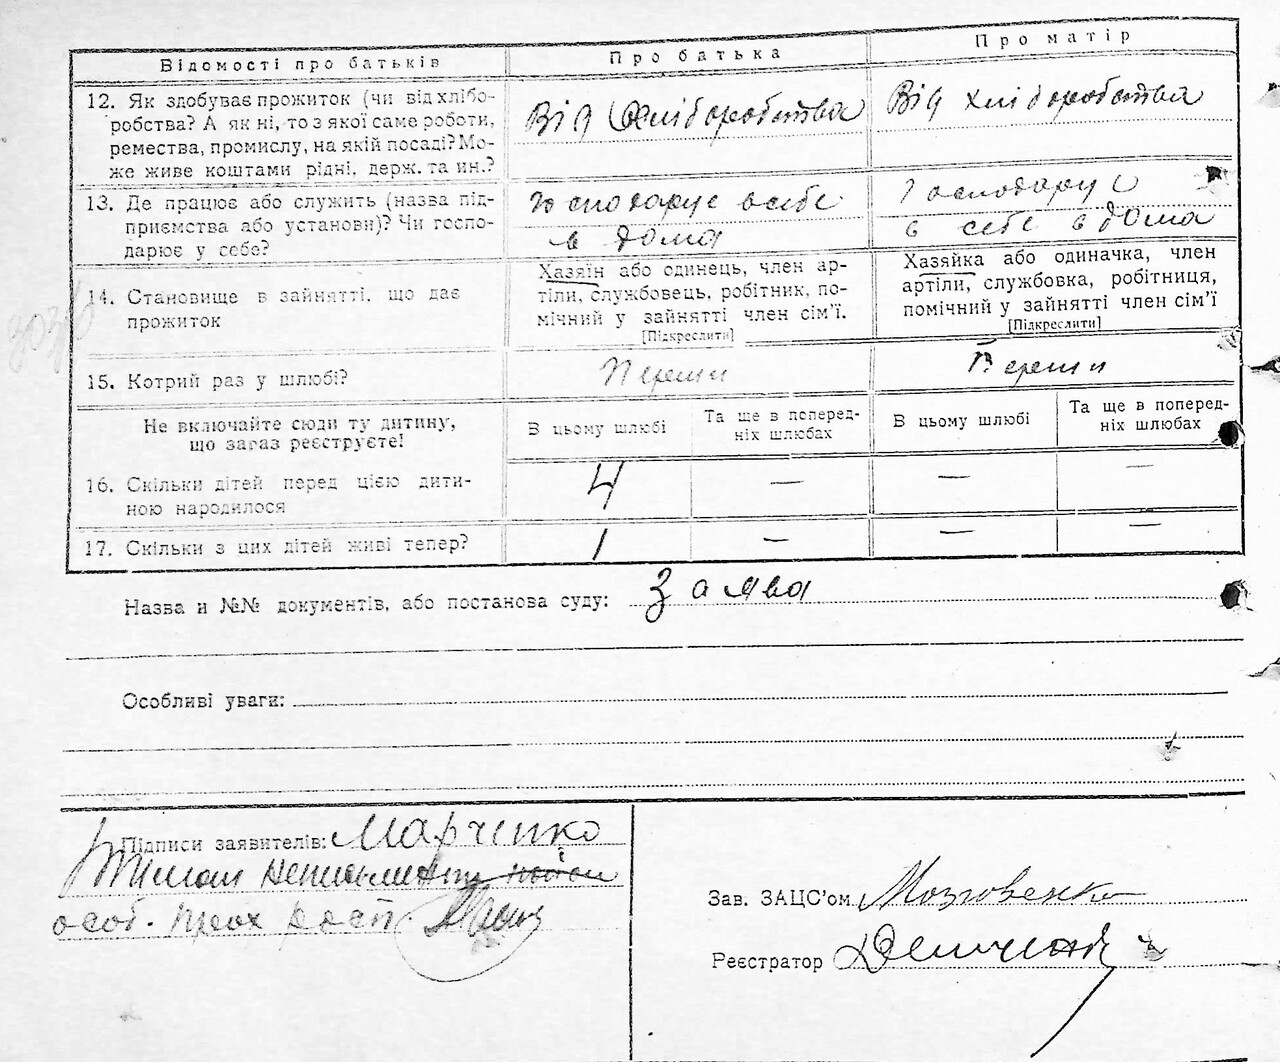 Відомості про батьків
Про батька
Про матір
12. Як здобуває прожиток (чи від хлібо-
робства? А як ні, то з якої саме роботи,
ремества, промислу, на якій посаді? Мо-
же живе коштами рідні, держ. та ин.?
Від хліборобства
Від хліборобства
13. Де працює або служить (назва під-
приємства або установи)? Чи госпо-
дарює у себе?
господарує в себе
в дома
Господарує
в себе в дома
14. Становище в зайнятті, що дає
прожиток
Хазяїн або одинець, член ар-
тіли, службовець, робітник, по-
мічний у зайнятті член сім'ї.
[Підкреслити]
Хазяйка або одиначка, член
артіли, службовка, робітниця,
помічний у зайнятті член сім'ї
[Підкреслити]
15. Котрий раз у шлюбі?
Перши
Перши
Не включайте сюди ту дитину,
що зараз реєструєте!
В цьому шлюбі
Та ще в поперед-
ніх шлюбах
В цьому шлюбі
Та ще в поперед-
ніх шлюбах
16. Скільки дітей перед цією дити-
ною народилося
4 — — —
17. Скільки з цих дітей живі тепер?
1 — — —
Назва и №№ документів, або постанова суду: Заява
Особливі уваги:
Підписи заявителів: Марченко
особ.
Зав. ЗАЦС'ом Мозговенко
Реєстратор